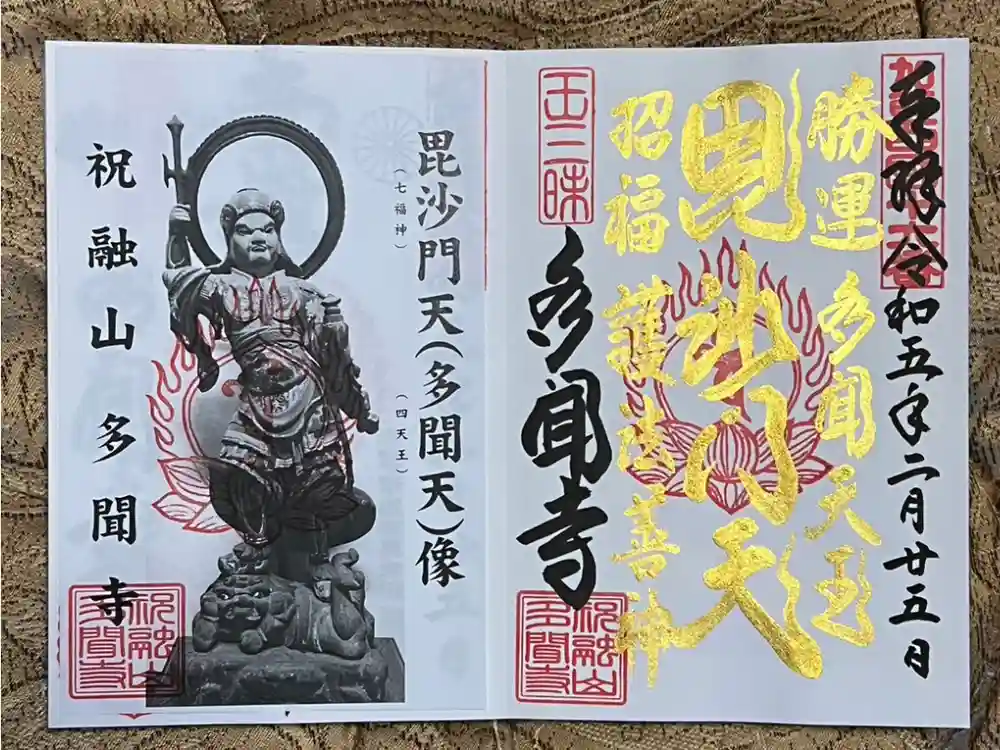 奉拝 令和五年二月廿五日
勝運 多聞天王
毘沙門天
招福 護法善神
王三昧
多聞寺
祝融山
多聞寺
毘沙門天(多聞天)像
(七福神)
(四天王)
祝融山多聞寺
祝融山
多聞寺